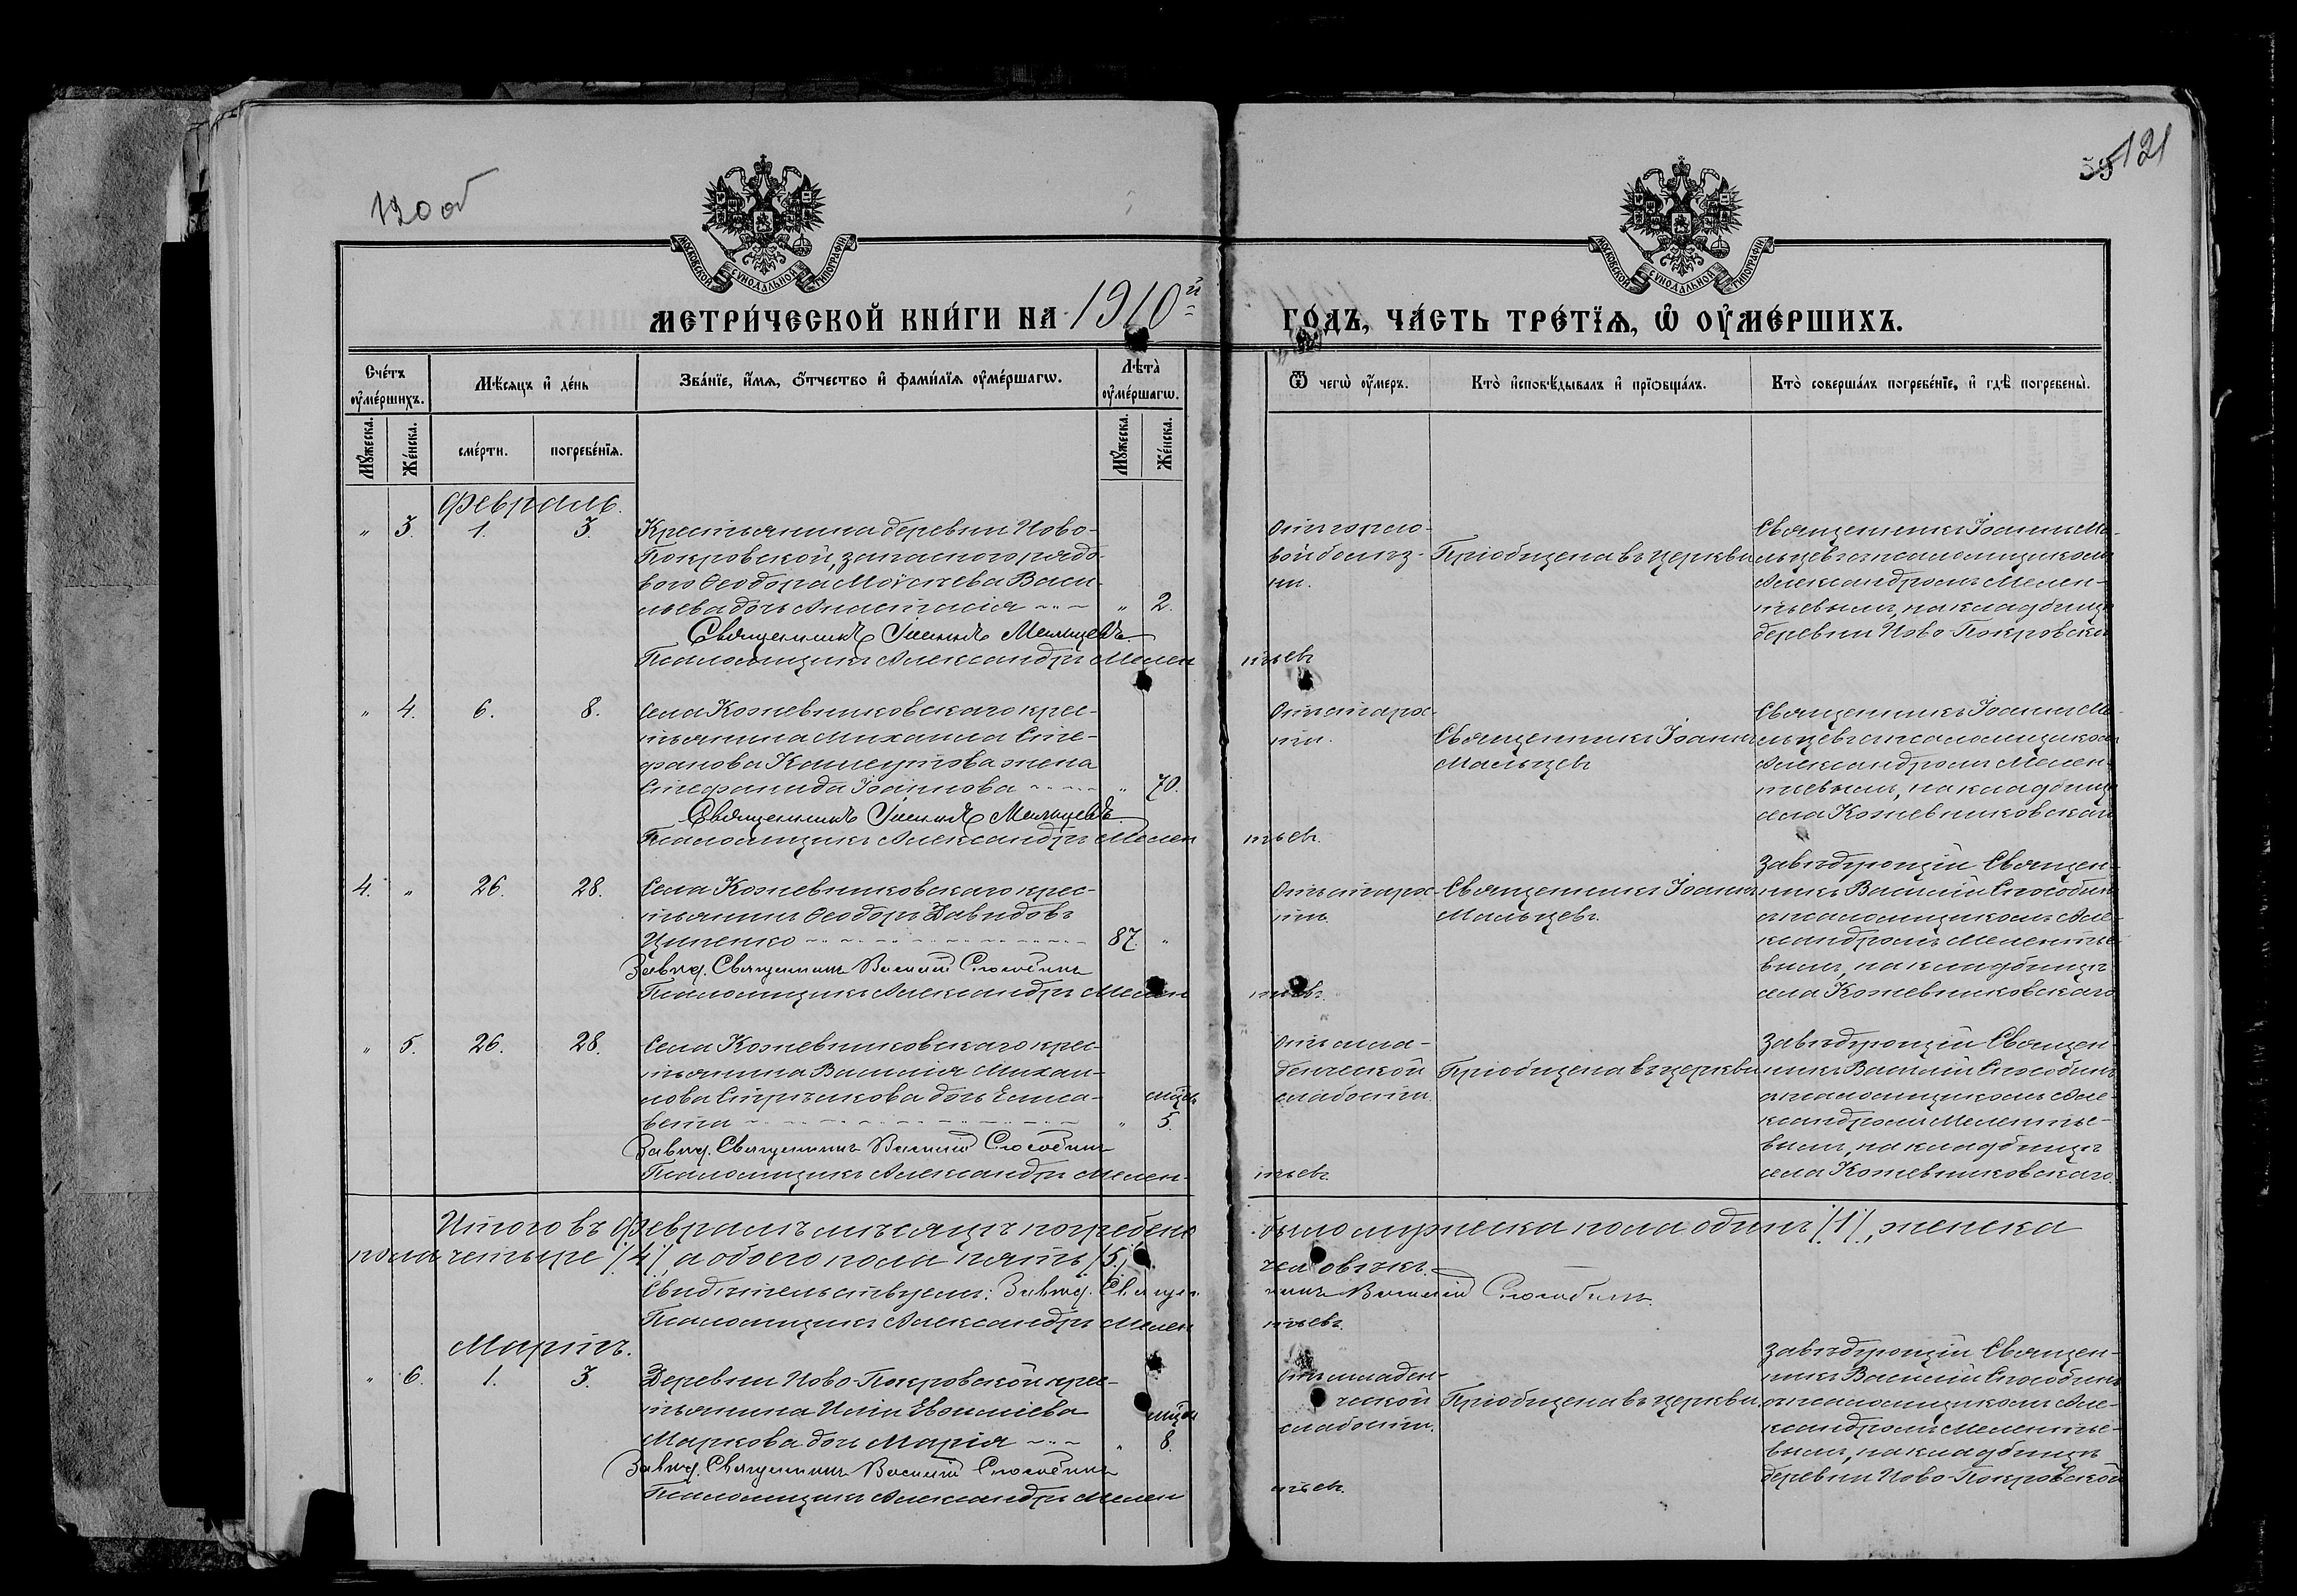 120 об
59 121
МОСКОВСКОЙ СѴНОДАЛЬНОЙ ТИПОГРАФІИ
МОСКОВСКОЙ СѴНОДАЛЬНОЙ ТИПОГРАФІИ
МЕТРИ́ЧЕСКОЙ КНИ́ГИ НА 1910й
ГО́ДЪ, ЧА́СТЬ ТРЕ́ТЇѦ, Ѡ҆ ОУ҆МЕ́РШИХЪ.
Сче́тъ оу҆ме́ршихъ.
Мѣ́сяцъ и҆ де́нь
Зва́нїе, и҆́мѧ, ѻ҆́тчество и҆ фами́лїѧ оу҆ме́ршагѡ.
Лѣ́та оу҆ме́ршагѡ.
Ѿ чегѡ̀ оу҆́меръ.
Кто̀ и҆сповѣ́дывалъ и҆ прїѻбща́лъ.
Кто̀ соверша́лъ погребе́нїе, и҆ гдѣ̀ погребены̀.
Мꙋ́жеска.
Же́нска.
сме́рти.
погребе́нїѧ.
Мꙋ́жеска.
Же́нска.
Февраль.
" 3. 1. 3. Крестьянина деревни Ново-
Покровской, запаснаго рядо-
вого Ѳеодора Моѵсеева Васи-
льева дочь Анастасія " 2.
Священникъ Іоаннъ Мальцевъ
Псаломщикъ Александръ Мелен
тьевъ
От горло-
вой болѣз-
ни.
Пріобщена въ церкви
Священникъ Іоаннъ Ма-
льцевъ с псаломщикомъ
Александромъ Мелен-
тьевымъ, на кладбищѣ
деревни Ново-Покровской
" 4. 6. 8. Села Кожевниковскаго крес-
тьянина Михаила Сте-
фанова жена
Стефанида Іоаннова " 70.
Священникъ Іоаннъ Мальцевъ
Псаломщикъ Александръ Мелен
тьевъ.
Отъ старос-
ти.
Священникъ Іоаннъ
Мальцевъ
Священникъ Іоаннъ Ма-
льцевъ с псаломщикомъ
Александромъ Мелен-
тьевымъ, на кладбищѣ
села Кожевниковскаго
4. " 26. 28. Села Кожевниковскаго крес-
тьянинъ Ѳеодоръ Давидовъ
Цыпенко 87. "
Завѣд. Священникъ Василій Способинъ
Псаломщикъ Александръ Мелен
тьевъ.
Отъ старос-
ти.
Священникъ Іоаннъ
Мальцевъ.
Завѣдующій Священ-
никъ Василій Способинъ
с псаломщикомъ Але-
ксандромъ Мелентье-
вымъ, на кладбищѣ
села Кожевниковскаго
" 5. 26. 28. Села Кожевниковскаго крес-
тьянина Василія Михаи-
лова Стрѣлкова дочь Елиса-
вета " мѣсц. 5.
Завѣд. Священникъ Василій Способинъ
Псаломщикъ Александръ Мелен-
тьевъ.
Отъ мла-
денческой
слабости.
Пріобщена въ церкви
Завѣдующій Священ
никъ Василій Способинъ
с псаломщикомъ Але-
ксандромъ Мелентье-
вымъ, на кладбищѣ
села Кожевниковскаго.
Итого въ Февралѣ мѣсяцѣ погребено было мужеска пола одинъ /1/, женска
пола четыре /4/, а обоего пола пять /5/ человѣкъ.
Свидѣтельствуемъ: Завѣд. Священникъ Василій Способинъ.
Псаломщикъ Александръ Мелентьевъ.
Мартъ.
" 6. 1. 3. Деревни Ново-Покровской крес-
тьянина Иліи
Маркова дочь Марія " мѣсц. 8.
Завѣд. Священникъ Василій Способинъ
Псаломщикъ Александръ Мелен
тьевъ.
Отъ младен-
ческой
слабости.
Пріобщена въ церкви
Завѣдующій Священ-
никъ Василій Способинъ
с псаломщикомъ Але-
ксандромъ Мелентье-
вымъ, на кладбищѣ
деревни Ново-Покровской